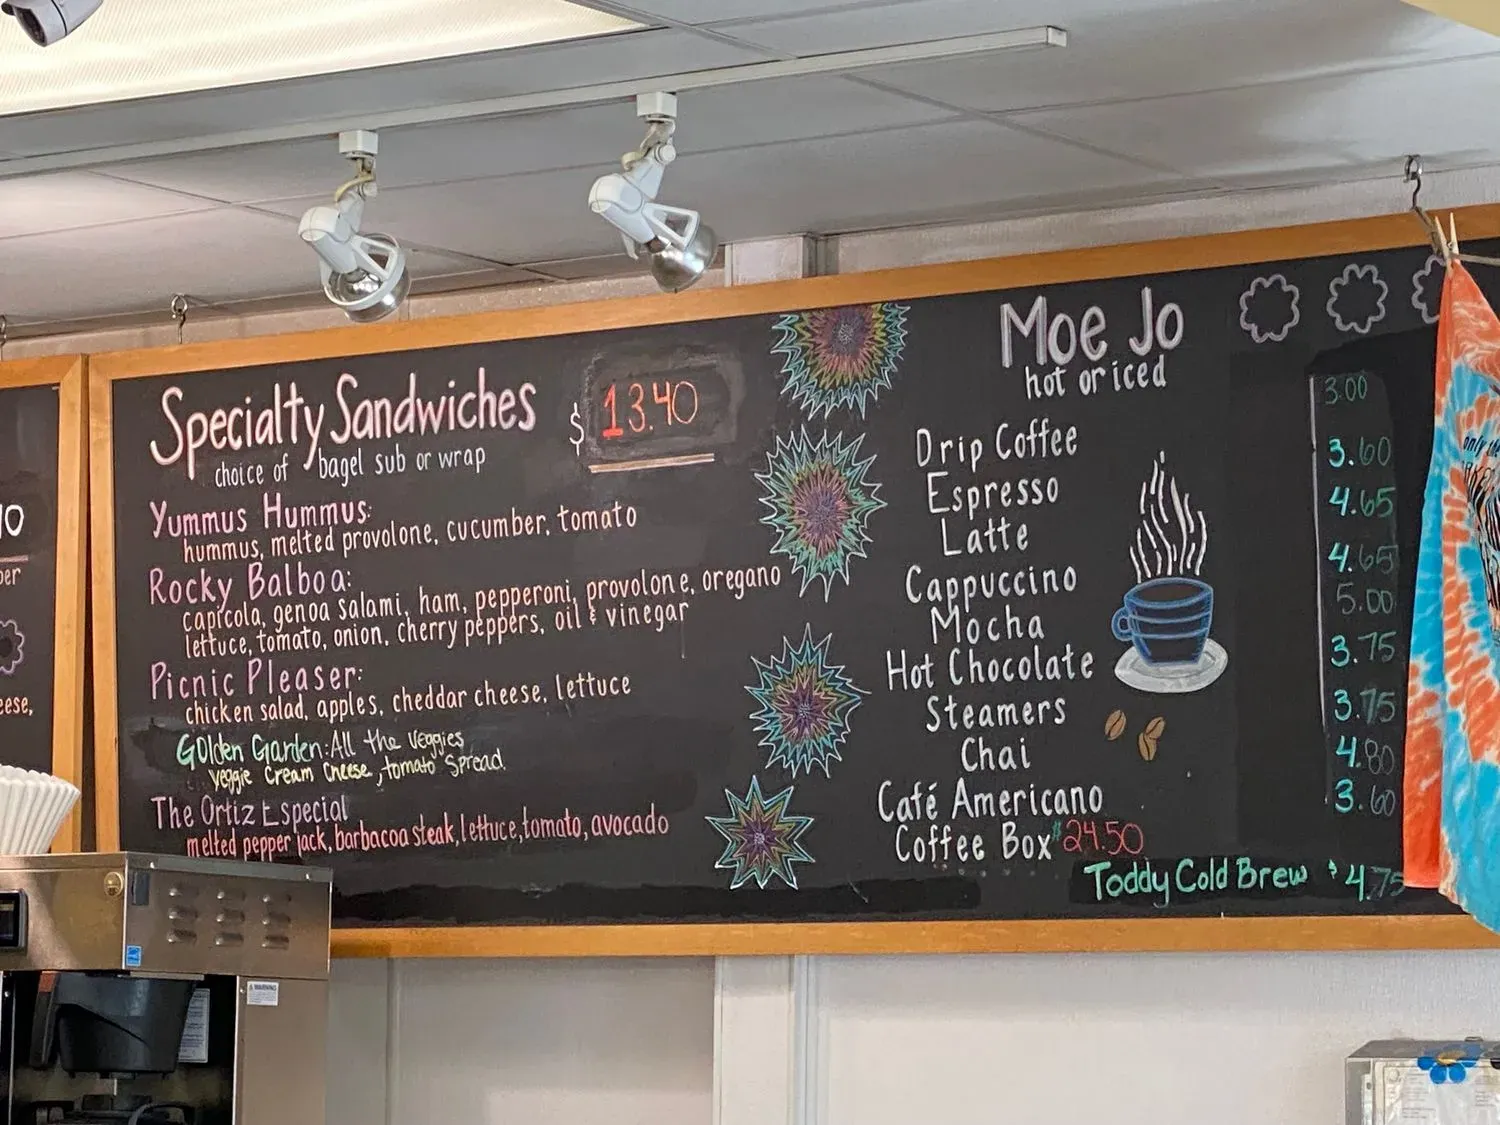 Specialty Sandwiches $ 13.40
choice of bagel sub or wrap
Yummus Hummus:
hummus, melted provolone, cucumber, tomato
Rocky Balboa:
capicola, genoa salami, ham, pepperoni, provolone, oregano
lettuce, tomato, onion, cherry peppers, oil & vinegar
Picnic Pleaser:
chicken salad, apples, cheddar cheese, lettuce
Golden Garden: All the veggies
veggie Cream Cheese, tomato Spread.
The Ortiz Especial
melted pepper jack, barbacoa steak, lettuce, tomato, avocado
Moe Jo
hot or iced
Drip Coffee 3.00
Espresso 3.60
Latte 4.65
Cappuccino 4.65
Mocha 5.00
Hot Chocolate 3.75
Steamers 3.75
Chai 4.80
Café Americano 3.60
Coffee Box $24.50
Toddy Cold Brew $4.75
eese,
WARNING